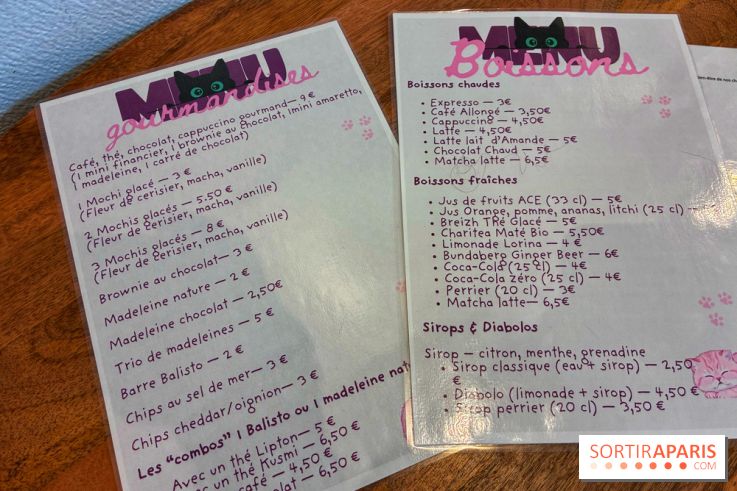 MENU
gourmandises
Café, thé, chocolat, cappuccino gourmand— 9 €
(1 mini financier, 1 brownie au chocolat, 1mini amaretto,
1 madeleine, 1 carré de chocolat)
1 Mochi glacé — 3 €
(Fleur de cerisier, macha, vanille)
2 Mochis glacés — 5.50 €
(Fleur de cerisier, macha, vanille)
3 Mochis glacés — 8 €
(Fleur de cerisier, macha, vanille)
Brownie au chocolat— 3 €
Madeleine nature — 2 €
Madeleine chocolat — 2,50€
Trio de madeleines — 5 €
Barre Balisto — 2 €
Chips au sel de mer— 3 €
Chips cheddar/oignion— 3 €
Les "combos" 1 Balisto ou 1 madeleine natu
Avec un thé Lipton— 5 €
un thé Kusmi — 6,50 €
café — 4,50 €
olat — 6,50 €
MENU
Boissons
Boissons chaudes
• Expresso — 3€
• Café Allongé — 3,50€
• Cappuccino — 4,50€
• Latte — 4,50€
• Latte lait d'Amande — 5€
• Chocolat Chaud — 5€
• Matcha latte — 6,5€
Boissons fraîches
• Jus de fruits ACE (33 cl) — 5€
• Jus Orange, pomme, ananas, litchi (25 cl) —
• Breizh Thé Glacé — 5€
• Charitea Maté Bio — 5,50€
• Limonade Lorina — 4 €
• Bundaberg Ginger Beer — 6€
• Coca-Cola (25 cl) — 4€
• Coca-Cola zéro (25 cl) — 4€
• Perrier (20 cl) — 3€
• Matcha latte— 6,5€
Sirops & Diabolos
Sirop — citron, menthe, grenadine
• Sirop classique (eau + sirop) — 2,50
€
• Diabolo (limonade + sirop) — 4,50 €
• Sirop perrier (20 cl) — 3,50 €
bien-être de nos ch
SORTIRAPARIS
.COM